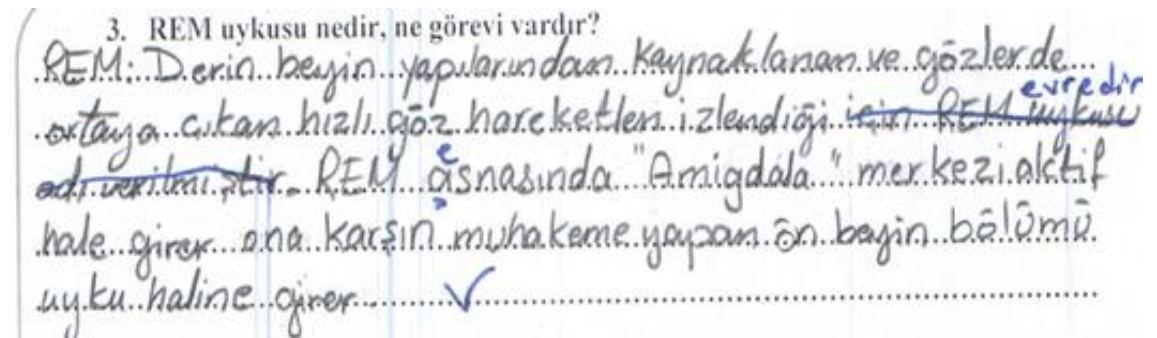 3. REM uykusu nedir, ne görevi vardır?
REM: Derin beyin yapılarından kaynaklanan ve gözlerde
evredir
ortaya çıkan hızlı göz hareketleri izlendiği için REM uykusu
adı verilmiştir. REM asnasında "Amigdala" merkezi aktif
e
hale girer ona karşın muhakeme yapan ön beyin bölümü
uyku haline girer